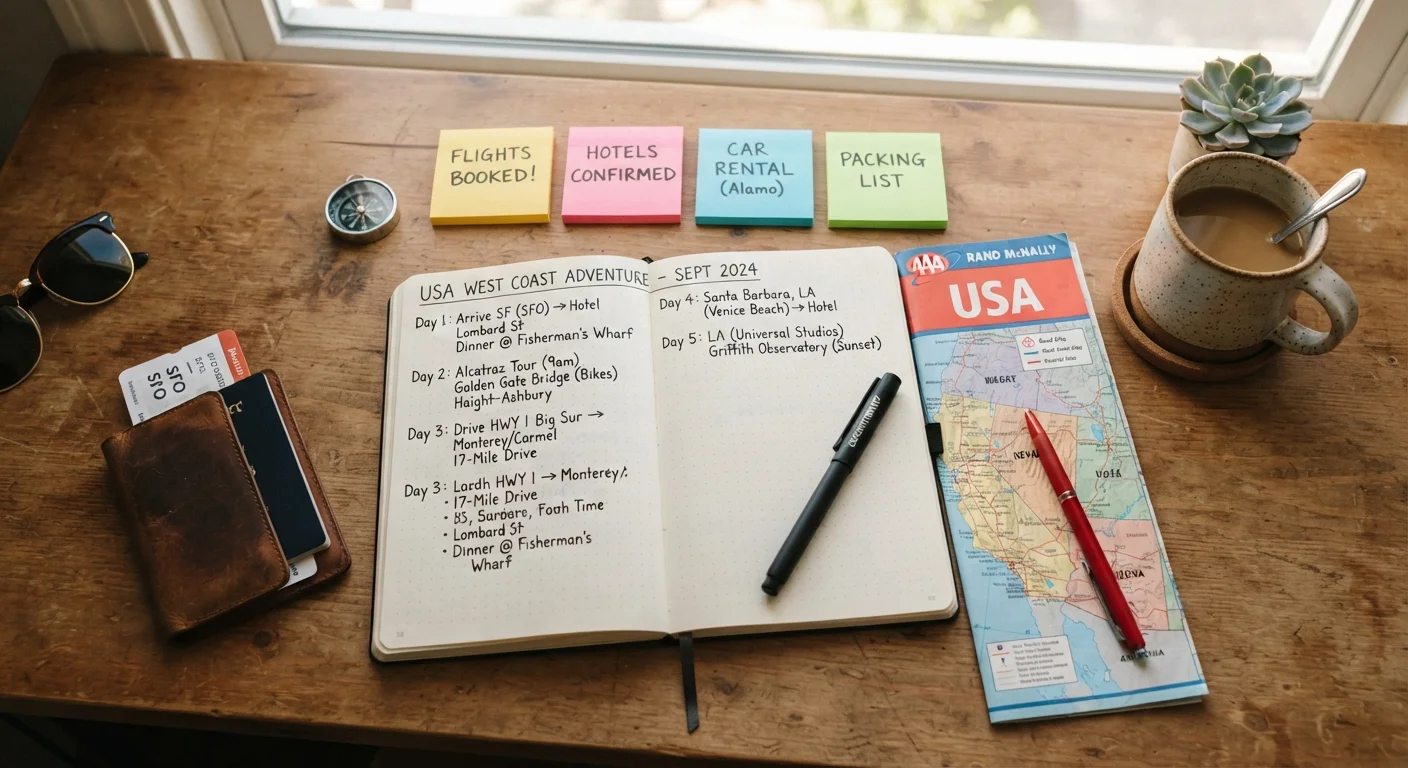 FLIGHTS
BOOKED!
HOTELS
CONFIRMED
CAR
RENTAL
(Alamo)
PACKING
LIST
USA WEST COAST ADVENTURE - SEPT 2024
Day 1: Arrive SF (SFO) → Hotel
Lombard St
Dinner @ Fisherman's Wharf
Day 2: Alcatraz Tour (9am)
Golden Gate Bridge (Bikes)
Haight-Ashbury
Day 3: Drive HWY 1 Big Sur →
Monterey/Carmel
17-Mile Drive
Day 3: Lardh HWY 1 → Monterey/:
• 17-Mile Drive
• Time
• Lombard St
• Dinner @ Fisherman's
Wharf
Day 4: Santa Barbara, LA
(Venice Beach) → Hotel
Day 5: LA (Universal Studios)
Griffith Observatory (Sunset)
AAA RAND McNALLY
USA
SFO
SFO